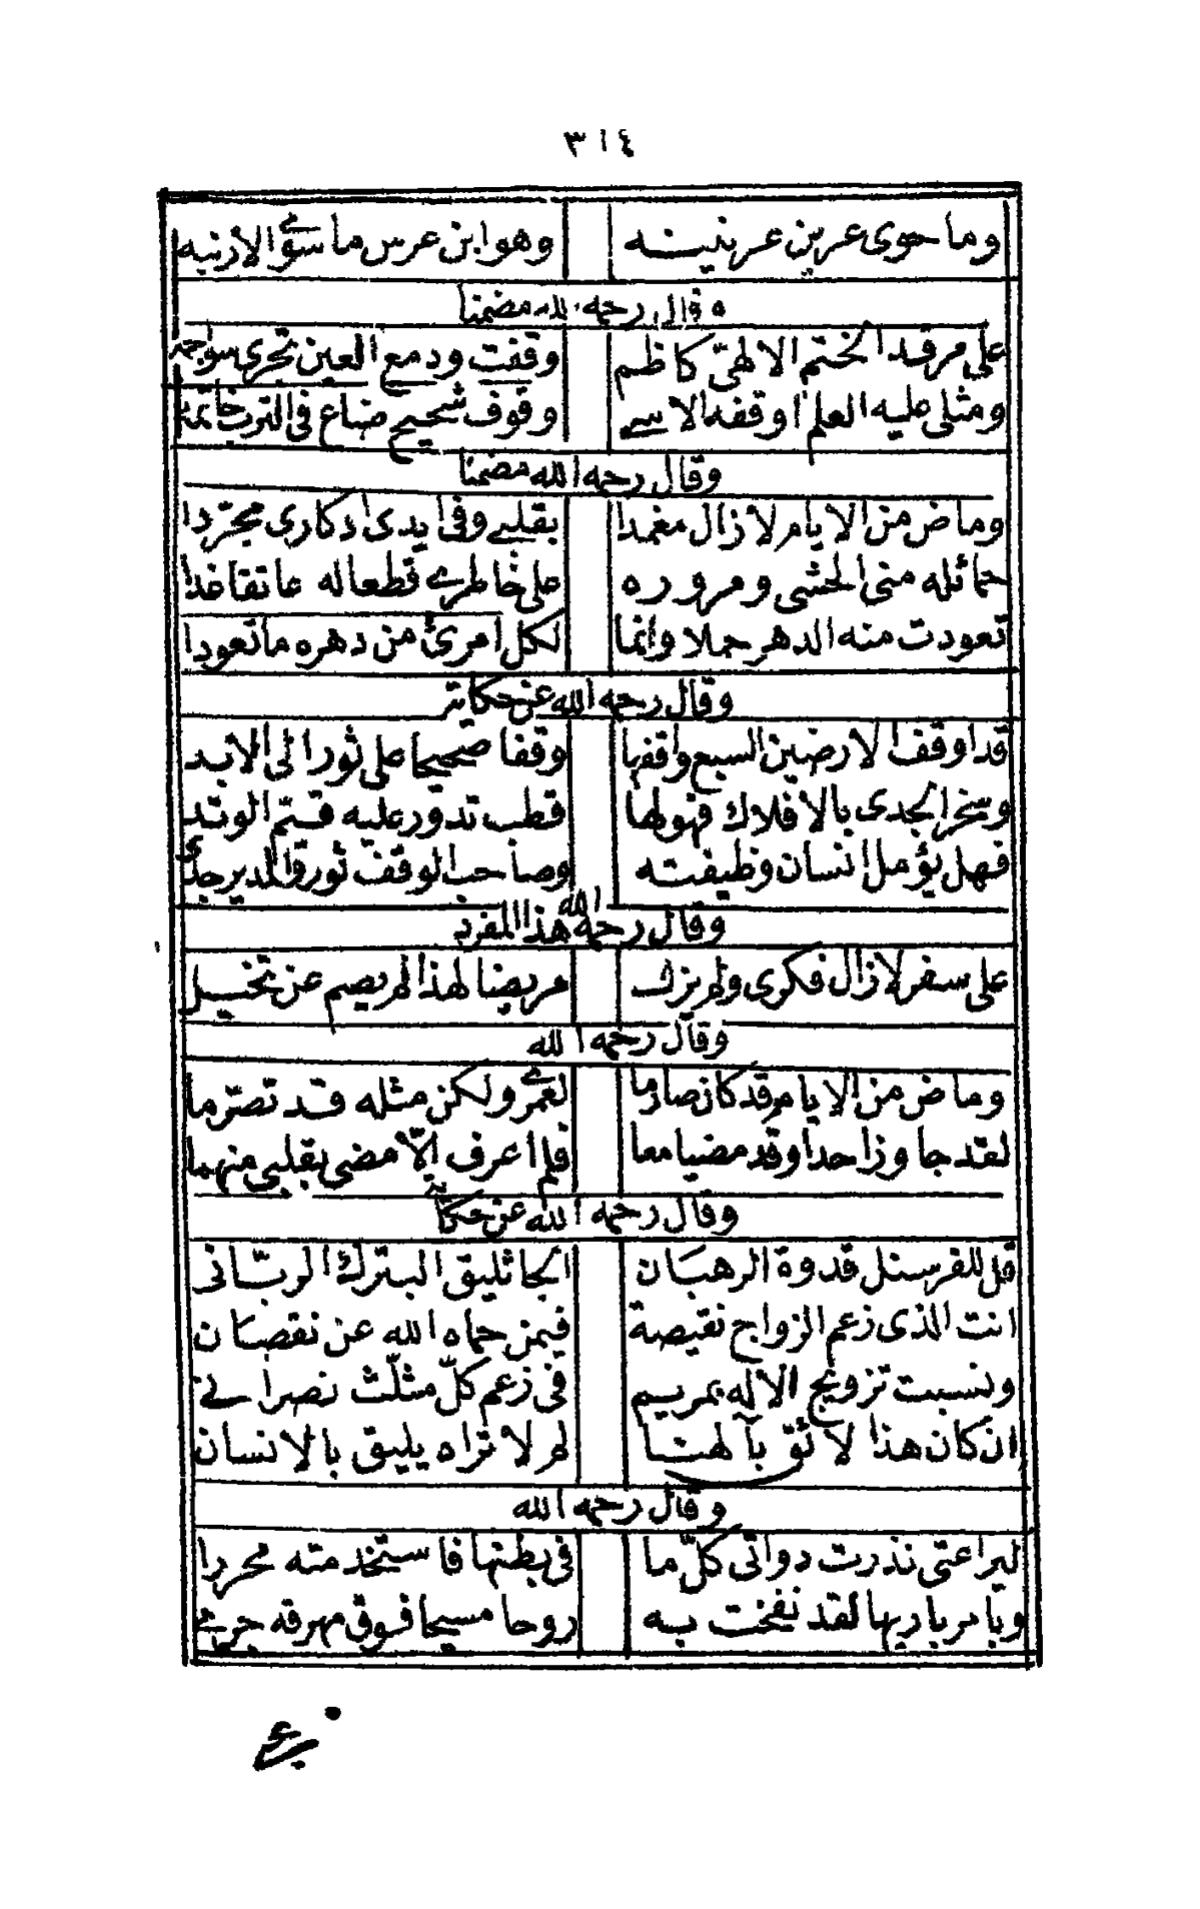 ٣١٤
وما حوى عرين عرينيته وهو ابن عرس ما سوى الاذنيه
وقال رحمه الله مضمنا
على مرقد الختم الالهيّ كاظم وقفت ودمع العين تجرى سواجمه
ومثلى عليه العلم اوقفه الاسى وقوف شحيح ضاع فى الترب خاتمه
وقال رحمه الله مضمنا
وماض من الايام لا زال مغمدا بقلبى وفى ايدى ادكارى مجرّدا
حمائله منى الحشى ومروره على خاطرى قطعا له عاتقا غدا
تعودت منه الدهر حملا وانما لكل امرئ من دهره ما تعودا
وقال رحمه الله عن حكاية
قد اوقف الارضين السبع واقفها وقفا صحيحا على ثور الى الابد
وسخر الجدى بالافلاك فهو لها قطب تدور عليه قيّم الوتد
فهل يؤمل انسان وظيفته وصاحب الوقف ثور والمدير جدى
وقال رحمه الله هذا المفرد
على سفر لا زال فكرى ولم نزل مريضا لهذا لم يصم عن تخيل
وقال رحمه الله
وماض من الايام قد كان صارما لعمرى ولكن مثله قد تصرّما
لقد جاوزا حدا وقد مضيا معا فلم اعرف الّا مضى بقلبى منهما
وقال رحمه الله عن حكاية
قل للقرسنل قدوة الرهبان الجاثليق البترك الربّانى
انت الذى زعم الزواج نقيصة فيمن حماه الله عن نقصان
ونسبت تزويج الاله بمريم فى زعم كلّ مثلّث نصرانى
ان كان هذا لائق بآلهنا لم لا تراه يليق بالانسان
وقال رحمه الله
ليراعتى نذرت دواتى كلّ ما فى بطنها فاستخدمته محررا
وبامر باريها لقد نفخت به روحا مسيحا فوق مهرقه جرى